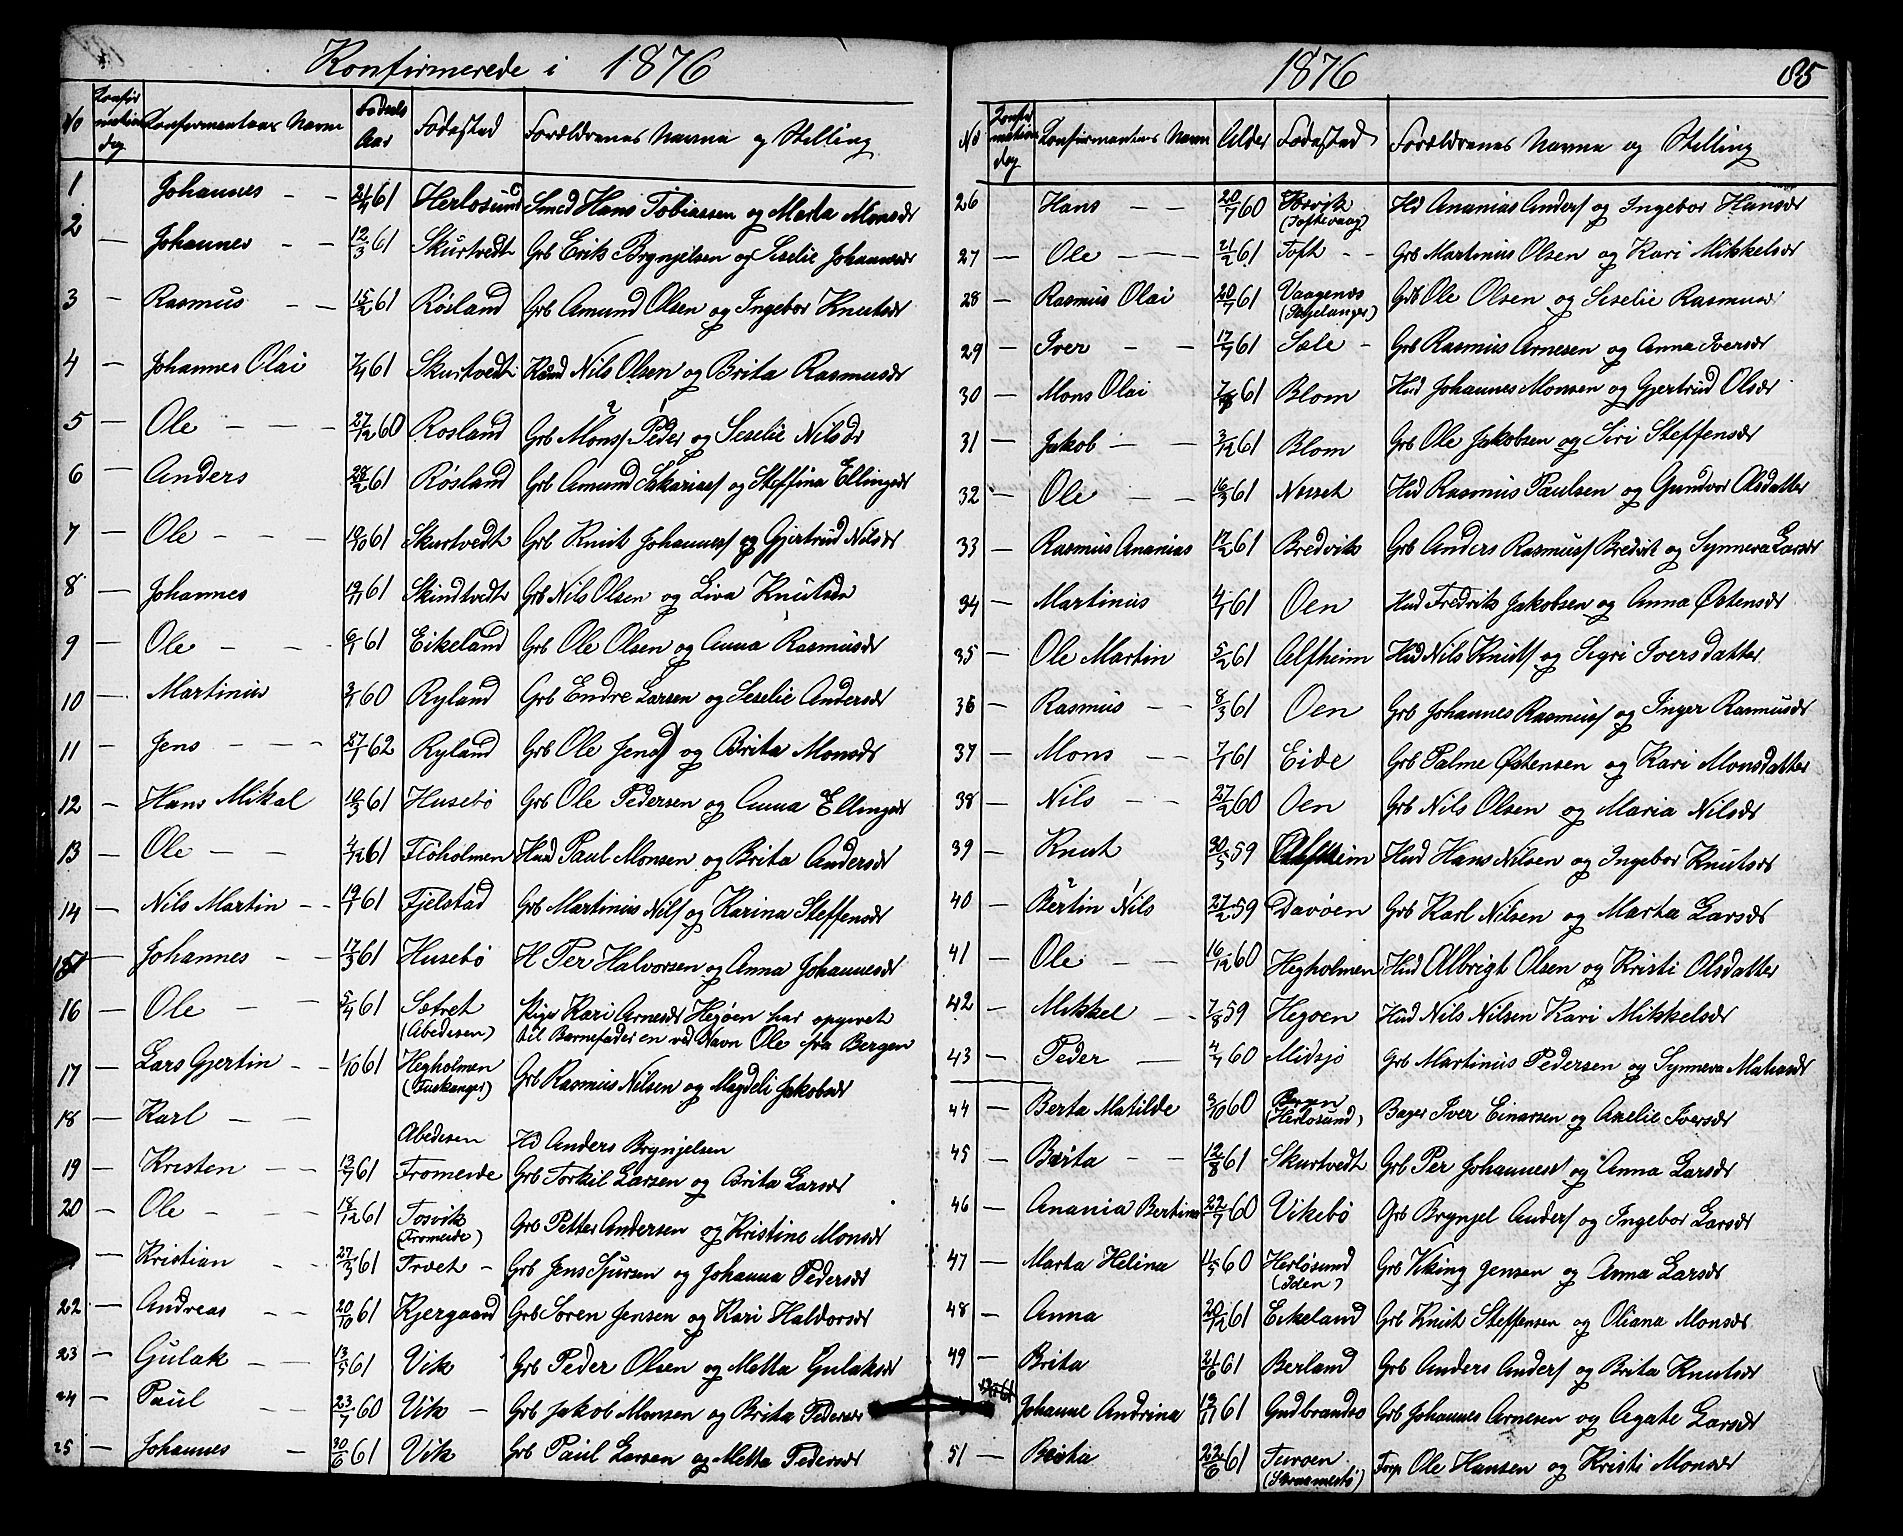 Konfirmerede i 1876
No Konfirmations dag Konfirmantens Navn Fødsels Aar Fødested Forældrenes Navne og Stilling
1 Johannes 61 Herløsund Smed Hans Tobiassen og Marta Monsdr
2 — Johannes 12/3 61 Skurtvedt Grb Erik Brynjelsen og Seselie Johannesdr
3 — Rasmus 15/2 61 Røsland Grb Amund Olsen og Ingebor Knutsdr
4 — Johannes Olai 7/4 61 Skurtvedt Nils Olsen og Brita Rasmusdr
5 — Ole 27/12 60 Rosland Grb Mons Peder og Seselie Nilsdr
6 — Anders 28/2 61 Røsland Grb Amund Sakarias og Steffina Ellingsdr
7 — Ole 61 Skurtvedt Grb Knut Johannes og Gjertrud Nilsdr
8 — Johannes 19/11 61 Skindtvedt Grb Nils Olsen og Liva Knutsdr
9 — Ole 6/1 61 Eikeland Grb Ole Olsen og Anna Rasmusdr
10 — Martinus 60 Ryland Grb Endre Larsen og Seselie Andersdr
11 — Jens 62 Ryland Grb Ole Jens og Brita Monsdr
12 — Hans Mikal 61 Husebø Grb Ole Pedersen og Anna Ellingsdr
13 — Ole 61 Floholmen Hud Paul Monsen og Brita Andersdr
14 — Nils Martin 19/1 61 Fjelstad Grb Martinus Nils og Karina Steffensdr
15 — Johannes 17/3 61 Husebø H Per Halvorsen og Anna Johannesdr
16 — Ole 5/4 61 Sætret (Abedisen) Pige Kari Arnesdr Hegøen har opgivet til Barnefader en ved Navn Ole fra Bergen
17 — Lars Gjertin 1/10 61 Hegholmen (Tuskanger) Grb Rasmus Nilsen og Magdeli Jakobsdr
18 — Karl Abedisen Hd Anders Brynjelsen
19 — Kristen 61 Fromeide Grb Torkil Larsen og Brita Larsdr
20 — Ole 18/12 61 Tosvik (Fromeide) Grb Petter Andersen og Kristine Monsdr
— Kristian 27/3 61 Træet Grb Jens Sjursen og Johanna Pedersdr
22 — Andreas 20/10 61 Kjergaard Grb Søren Jensen og Kari Haldorsdr
23 — Gulak 13/5 61 Vik Grb Peder Olsen og Metta Gulaksdr
24 — Paul 23/7 60 Vik Grb Jakob Monsen og Brita Pedersdr
25 — Johannes 30/6 61 Vik Grb Paul Larsen og Metta Pedersdr
1876 85
No Konfirmations dag Konfirmantens Navn Alder Fødested Forældrenes Navne og Stilling
26 Hans 20/7 60 (Toftevaag) Hd Ananias Anders og Ingebor Hansdr
27 — Ole 21/2 61 Toft Grb Martinus Olsen og Kari Mikkelsdr
28 — Rasmus Olai 20/7 61 Vaagenes Grb Ole Olsen og Seselie Rasmusdr
29 — Iver 61 Sæle Grb Rasmus Arnesen og Anna Iversdr
30 — Mons Olai 61 Blom Hud Johannes Monsen og Gjertrud Olsdr
31 — Jakob 3/12 61 Blom Grb Ole Jakobsen og Siri Steffensdr
32 — Ole 16/3 61 Nesset Hud Rasmus Paulsen og Gundvor Olsdatter
33 — Rasmus Ananias 17/2 61 Bredvik Grb Anders Rasmus Bredvik og Synneva Larsdr
34 — Martinus 4/1 61 Oen Hud Fredrik Jakobsen og Anna Østensdr
35 — Ole Martin 5/2 61 Alfheim Hud Nils Knuts og Sigri Iversdatter
36 — Rasmus 8/3 61 Oen Grb Johannes Rasmus og Inger Rasmusdr
37 — Mons 7/1 61 Eide Grb Palme Østensen og Kari Monsdatter
38 — Nils 27/2 60 Oen Grb Nils Olsen og Maria Nilsdr
39 — Knut 30/5 59 Alfheim Hud Hans Nilsen og Ingebor Knutsdr
40 — Bertin Nils 27/2 59 Davøen Grb Karl Nilsen og Marta Larsdr
41 — Ole 16/12 60 Hegholmen Hud Albrigt Olsen og Kristi Olsdatter
42 — Mikkel 7/8 59 Hegøen Hud Nils Nilsen Kari Mikkelsdr
43 — Peder 60 Midsjø Grb Martinus Pedersen og Synneva Matiasdr
44 — Berta Matilde 60 (Herløsund) Bager Iver Einarsen og Axelie Iversdr
45 — Berita 12/8 61 Skurtvedt Grb Per Johannes og Anna Larsdr
46 — Anania Bertine 22/7 60 Vikebø Grb Brynjel Anders og Ingebor Larsdr
47 — Marta Helina 60 Herløsund (Iden) Grb Viking Jensen og Anna Larsdr
48 — Anna 20/12 61 Eikeland Grb Knut Steffensen og Oliana Monsdr
49 — Brita 61 Berland Grb Anders Anders og Brita Knutsdr
Johanne Andrina 61 Gudbrandsø Grb Johannes Arnesen og Agate Larsdr
51 — Berita 22/6 61 Turøen Forp Ole Hansen og Kristi Monsdr